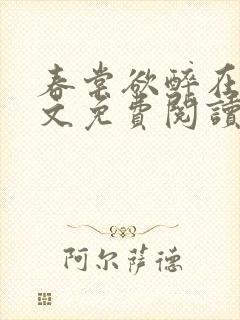 春棠欲醉在
文免費閱讀
阿尔萨德